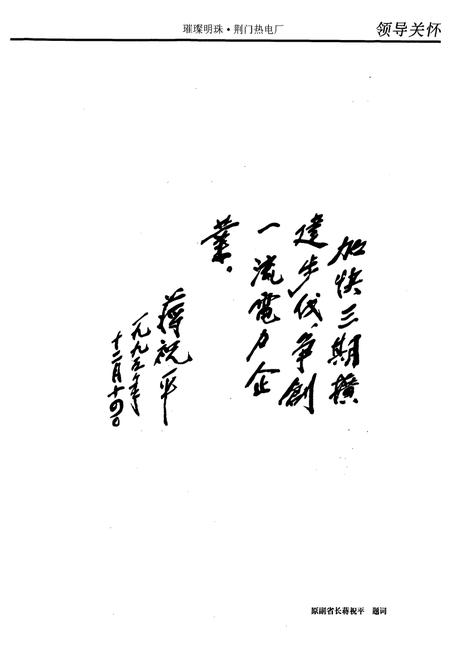 璀璨明珠·荆门热电厂
领导关怀
加快三期擴
建步伐，争創
一流電力企
業。
蒋祝平
一九九五年
十二月十四日
原副省长蒋祝平 题词